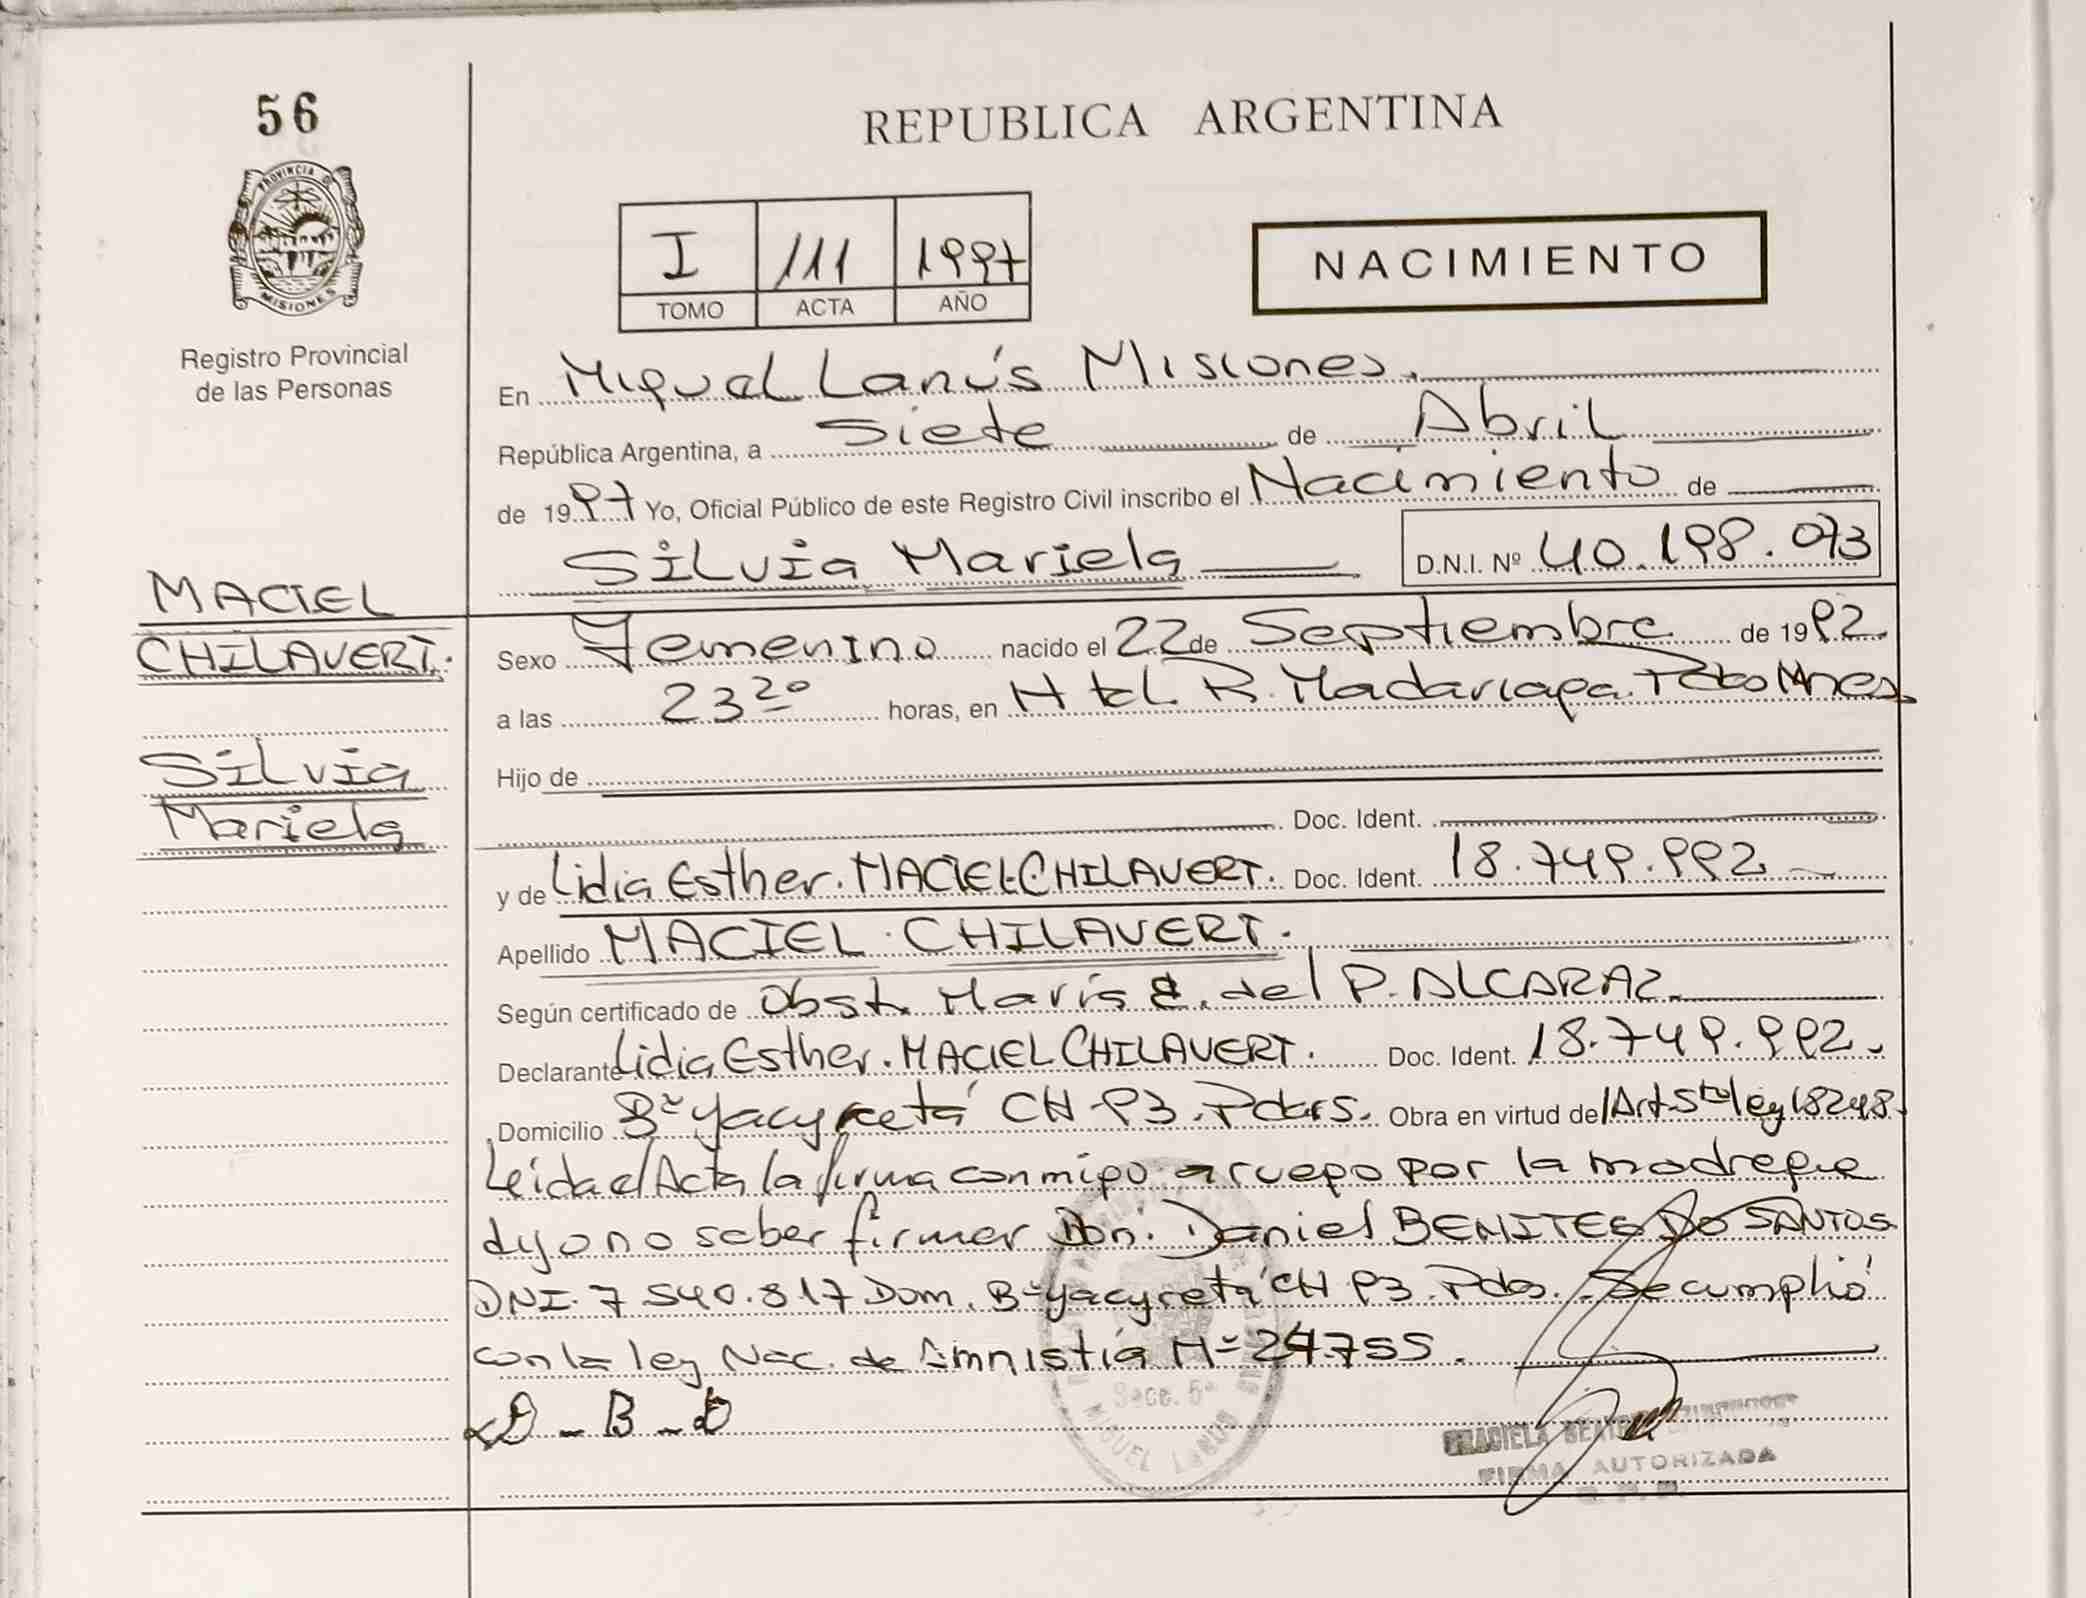 56
PROVINCIA DE
MISIONES
Registro Provincial
de las Personas
REPUBLICA ARGENTINA
I 111 1997
TOMO ACTA AÑO
NACIMIENTO
En Miguel Lanús Misiones.
República Argentina, a Siete de Abril
de 1997 Yo, Oficial Público de este Registro Civil inscribo el Nacimiento de
Silvia Mariela D.N.I. Nº 40.198.073
MACIEL
CHILAVERT.
Silvia
Mariela
Sexo Femenino nacido el 22 de Septiembre de 1992.
a las 23 20 horas, en Htal R. Madariaga. Pdas Mnes.
Hijo de
Doc. Ident.
y de Lidia Esther. MACIEL CHILAVERT. Doc. Ident. 18.749.992
Apellido MACIEL CHILAVERT.
Según certificado de Obst. María E. del P. ALCARAZ.
Declarante Lidia Esther. MACIEL CHILAVERT. Doc. Ident. 18.749.992.
Domicilio Bº Yacyretá CH 93. Pdas. Obra en virtud del Art 5to ley 18248.
Leida el Acta la firma conmigo a ruego por la madre que
dijo no saber firmar Don. Daniel BENITES DO SANTOS
DNI. 7 540.817 Dom. Bº Yacyretá CH 93. Pdas. Se cumplió
con la ley Nac. de Amnistía Nº 24.755.
D - B - D
Secc. 5ª
MIGUEL LANUS
GRACIELA
FIRMA AUTORIZADA